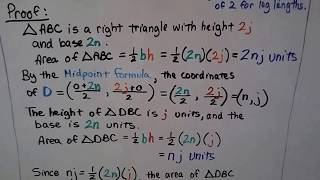 of 2 for leg lengths.
Proof:
△ABC is a right triangle with height 2j
and base 2n.
Area of △ABC = ½bh = ½(2n)(2j) = 2nj units
By the Midpoint formula, the coordinates
of D = (0+2n/2, 2j+0/2) = (2n/2, 2j/2) = (n, j)
The height of △DBC is j units, and the
base is 2n units.
Area of △DBC = ½bh = ½(2n)(j)
= nj units
Since nj = ½(2n)(j), the area of △DBC